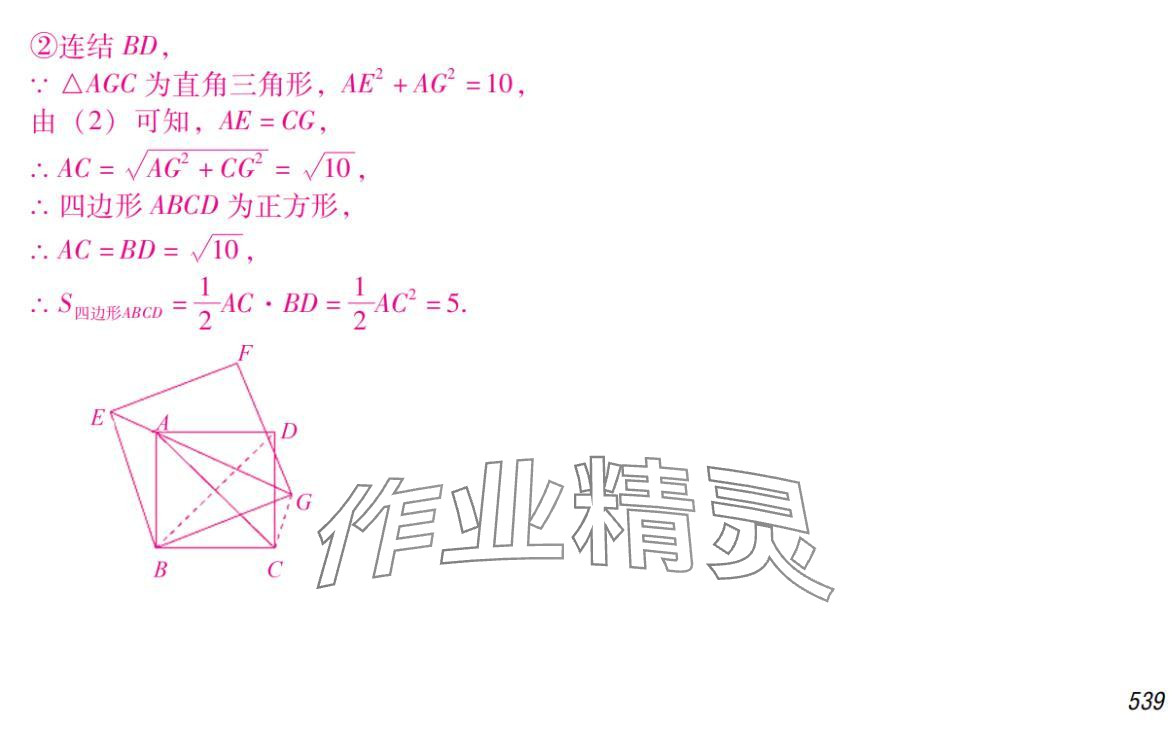 ②连结 BD，
∵ △AGC 为直角三角形，AE² + AG² = 10，
由（2）可知，AE = CG，
∴ AC = √(AG² + CG²) = √10，
∴ 四边形 ABCD 为正方形，
∴ AC = BD = √10，
∴ S四边形ABCD = 1/2 AC · BD = 1/2 AC² = 5.
F
E
A
D
G
B
C
作业精灵
539